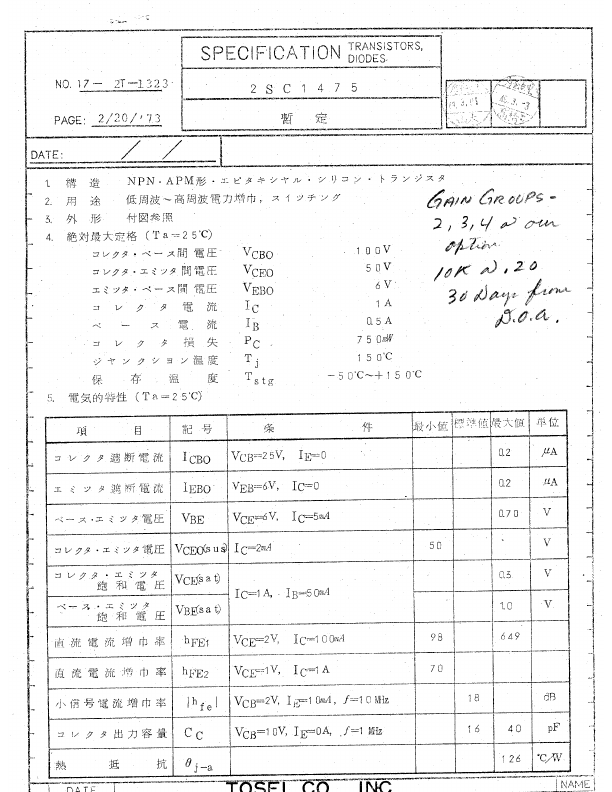 SPECIFICATION TRANSISTORS, DIODES.
NO. 17- 2T-1323
2SC1475
PAGE: 2/20/'73
暫定
DATE: / /
1. 構造 NPN・APM形・エピタキシャル・シリコン・トランジスタ
2. 用途 低周波〜高周波電力増巾, スイッチング
3. 外形 付図参照
4. 絶対最大定格 (Ta=25℃)
コレクタ・ベース間電圧 VCBO 100V
コレクタ・エミッタ間電圧 VCEO 50V
エミッタ・ベース間電圧 VEBO 6V
コレクタ電流 IC 1A
ベース電流 IB 0.5A
コレクタ損失 PC 750mW
ジャンクション温度 Tj 150℃
保存温度 Tstg -50℃〜+150℃
GAIN GROUPS -
2, 3, 4 @ our
option
10K @ .20
30 Days from
D.O.A.
5. 電気的特性 (Ta=25℃)
項目 記号 条件 最小値 標準値 最大値 単位
コレクタ遮断電流 ICBO VCB=25V, IE=0 0.2 μA
エミッタ遮断電流 IEBO VEB=6V, IC=0 0.2 μA
ベース・エミッタ電圧 VBE VCE=6V, IC=5mA 0.70 V
コレクタ・エミッタ電圧 VCEO(sus) IC=2mA 50 V
コレクタ・エミッタ飽和電圧 VCE(sat) IC=1A, IB=50mA 0.3 V
ベース・エミッタ飽和電圧 VBE(sat) 1.0 V
直流電流増巾率 hFE1 VCE=2V, IC=100mA 98 649
直流電流増巾率 hFE2 VCE=1V, IC=1A 70
小信号電流増巾率 |hfe| VCB=2V, IE=10mA, f=10MHz 18 dB
コレクタ出力容量 CC VCB=10V, IE=0A, f=1MHz 16 40 pF
熱抵抗 θj-a 126 ℃/W
DATE TOSEI CO. INC. NAME